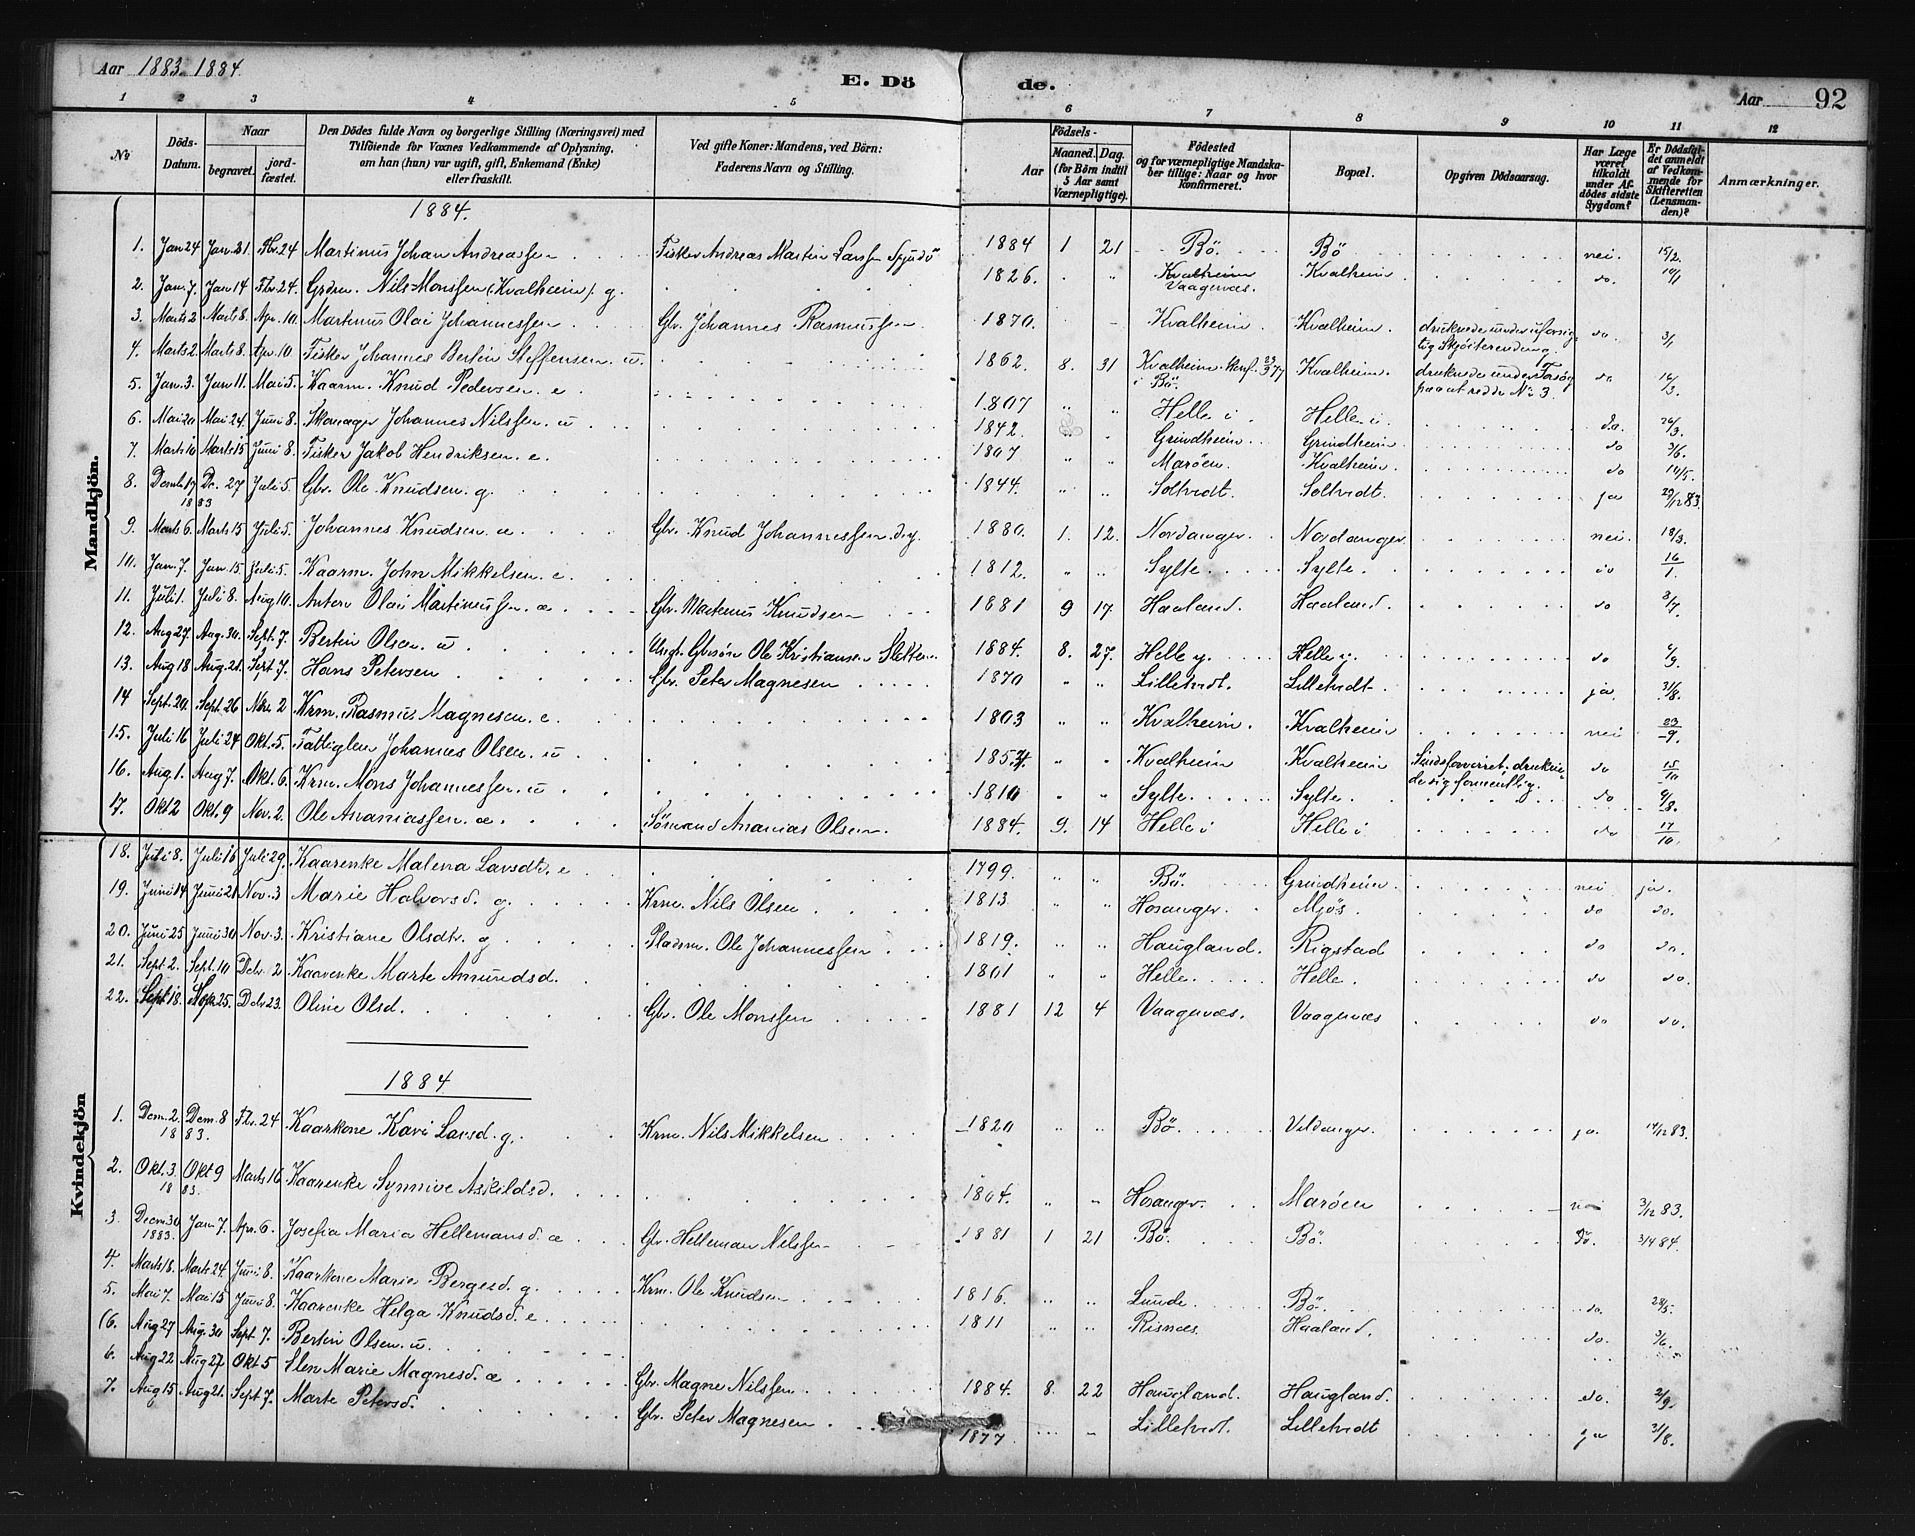 Aar 1883. 1884.
E. Dö de.
Aar 92
1 2 3 4 5 6 7 8 9 10 11 12
No
Döds-Datum.
Naar
begravet.
jord-fæstet.
Den Dödes fulde Navn og borgerlige Stilling (Næringsvei) med
Tilföiende for Voxnes Vedkommende af Oplysning,
om han (hun) var ugift, gift, Enkemand (Enke)
eller fraskilt.
Ved gifte Koner: Mandens, ved Börn:
Faderens Navn og Stilling.
Födsels-
Aar
Maaned. Dag.
(for Börn indtil
5 Aar samt
Værnepligtige).
Födested
og for værnepligtige Mandska-
ber tillige: Naar og hvor
konfirmeret.
Bopæl.
Opgiven Dödsaarsag.
Har Læge
været
tilkaldt
under Af-
dödes sidste
Sygdom?
Er Dödsfal-
det anmeldt
af Vedkom-
mende for
Skifteretten
(Lensman-
den)?
Anmærkninger.
Mandkjön.
1884.
1. Jan 24 Jan. 31 Fbr. 24 Martinus Johan Andreassen Fisker Andreas Martin Larss 1884 1 21 Bö. Bö nei. 15/2.
2. Jan. 7. Jan 14 Fbr. 24. Grdm. Nils Monssen (Kvalheim). g. 1826. Kvalheim Vaagenæs. Kvalheim. do.
3. Marts 2 Marts 8. Apr. 10. Martinus Olai Johannessen Gbr. Johannes Rasmussen 1870. Kvalheim Kvalheim. druknede under uforsig-
tig Skjöiterending. do. 3/1
4. Marts 2. Marts 8. Apr. 10 Fisker Johannes Bertin Steffensen. u. 1862. 8. 31 Kvalheim. Konf. 23/3 77 i Bö. Kvalheim. druknede under Forsög
paa at redde No 3. do 16/3.
5. Jan. 3. Jan 11. Mai 5. Kaarm. Knud Pedersen. e. 1807 Helle i Helle i. do. 26/3.
6. Mai 20 Mai 24. Juni 8. Johannes Nilssen. u 1842. Grindheim Grindheim do 3/6.
7. Marts 10 Marts 15 Juni 8. Fisker Jakob Hendriksen. e. 1807 Maröen. Kvalheim. do 14/5.
8. Decmb 17 Dc. 27 1883 Juli 5. Gbr. Ole Knudsen. g. 1844. Soltvedt. Soltvedt. ja 29/12 83.
9. Marts 6. Marts 15 Juli 5. Johannes Knudsen. æ Gbr. Knud Johannessen 1880. 1. 12. Nordanger. Nordanger nei. 18/3.
10. Jan. 7. Jan. 15. Juli 5. Kaarm. John Mikkelsen. e. 1812. Sylte. Sylte. do 16/1.
11. Juli 1. Juli 8. Aug 10. Anton Olai Martinussen. æ. Gbr. Martinus Knudsen 1881 9 17 Haaland. Haaland. do 8/7.
12. Aug 27. Aug. 30. Sept. 7. Bertin Olsen. u Ungk. Gbrsön Ole Kristiansen Sletten 1884. 8. 27. Helle y. Helle y. do
13. Aug 18 Aug. 21. Sept. 7. Hans Petersen Gbr. Peter Magnesen 1870 Lilletvedt. Lilletvedt. ja. 31/8.
14 Sept. 20. Sept. 26 Nbr. 2 Krm. Rasmus Magnesen. e. 1803 Kvalheim. Kvalheim nei 23/9.
15. Juli 16 Juli 24 Okt. 5. Fattiglm Johannes Olsen. u 1854. Kvalheim Kvalheim Sindsforvirret. druknede
sig formentlig. do 15/10
16. Aug. 1. Aug 7. Okt. 6. Krm. Mons Johannessen. u 1810 Sylte. Sylte. do 9/8.
17. Okt 2 Okt. 9 Nov. 2. Ole Ananiassen. æ. Ananias Olsen. 1884. 9. 14 Helle i Helle i do 17/10
Kvindekjön
18. Juli 8. Juli 16 Juli 29. Kaarenke Malena Larsdt. e 1799. Bö. Grindheim nei ja.
19. Juni 14 Juni 21 Nov. 3 Marie Halvorsd. g. Krm. Nils Olsen 1813 Hosanger. Mjös. do do.
20. Juni 25 Juni 30 Nov. 3. Kristiane Olsdt. g Pladsm. Ole Johannessen 1819. Haugland. Rigstad do do.
21. Sept. 2. Sept. 10 Debr. 2 Kaarenke Marte Amundsd. 1801 Helle. Helle. do do.
22. Sept. 18. 25. Debr. 23. Oline Olsd. Gbr. Ole Monssen 1881 12 4 Vaagenæs. Vaagenæs do do.
1884
1. Dcm. 2. Dcm. 8 1883. Fbr. 24 Kaarkone Kari Larsd. g. Krm. Nils Mikkelsen 1820 Bö. Veldanger. ja. 14/12 83.
2. Okt. 3. Okt 9 1883. Marts 16 Kaarenke Synnive Askildsd. 1804. Hosanger. Maröen nei 3/12 83.
3. Decm. 30 1883. Jan. 7. Apr. 6. Josefia Maria Hellemansd. æ Gbr. Helleman Nilssen 1881 1 21 Bö. Bö. Do. 3/4 84.
4. Marts 18. Marts 24. Juni 8. Kaarkone Marie Bergesd. g. Krm. Ole Knudsen 1816. Lunde. Bö. do. 28/5.
5. Mai 7. Mai 15 Juni 8. Kaarenke Helga Knudsd. e 1811 Risnæs. Haaland. do. 3/6.
(6. Aug 27 Aug. 30 Sept. 7. Bertin Olsen. u.
6. Aug 22 Aug 27 Okt 5 Elen Marie Magnesd. æ Gbr. Magne Nilssen 1884. 8. 22 Haugland. Haugland. do. 2/9.
7. Aug 15 Aug 21. Sept. 7. Marte Petersd. Gbr. Peter Magnesen 1877 Lilletvedt. Lilletvedt ja 31/8.